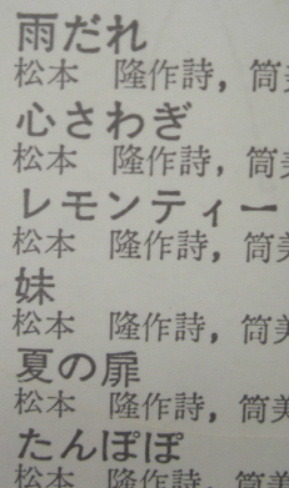 雨だれ
松本 隆作詩,筒美
心さわぎ
松本 隆作詩,筒美
レモンティー
松本 隆作詩,筒美
妹
松本 隆作詩,筒美
夏の扉
松本 隆作詩,筒美
たんぽぽ
松本 隆作詩,筒美